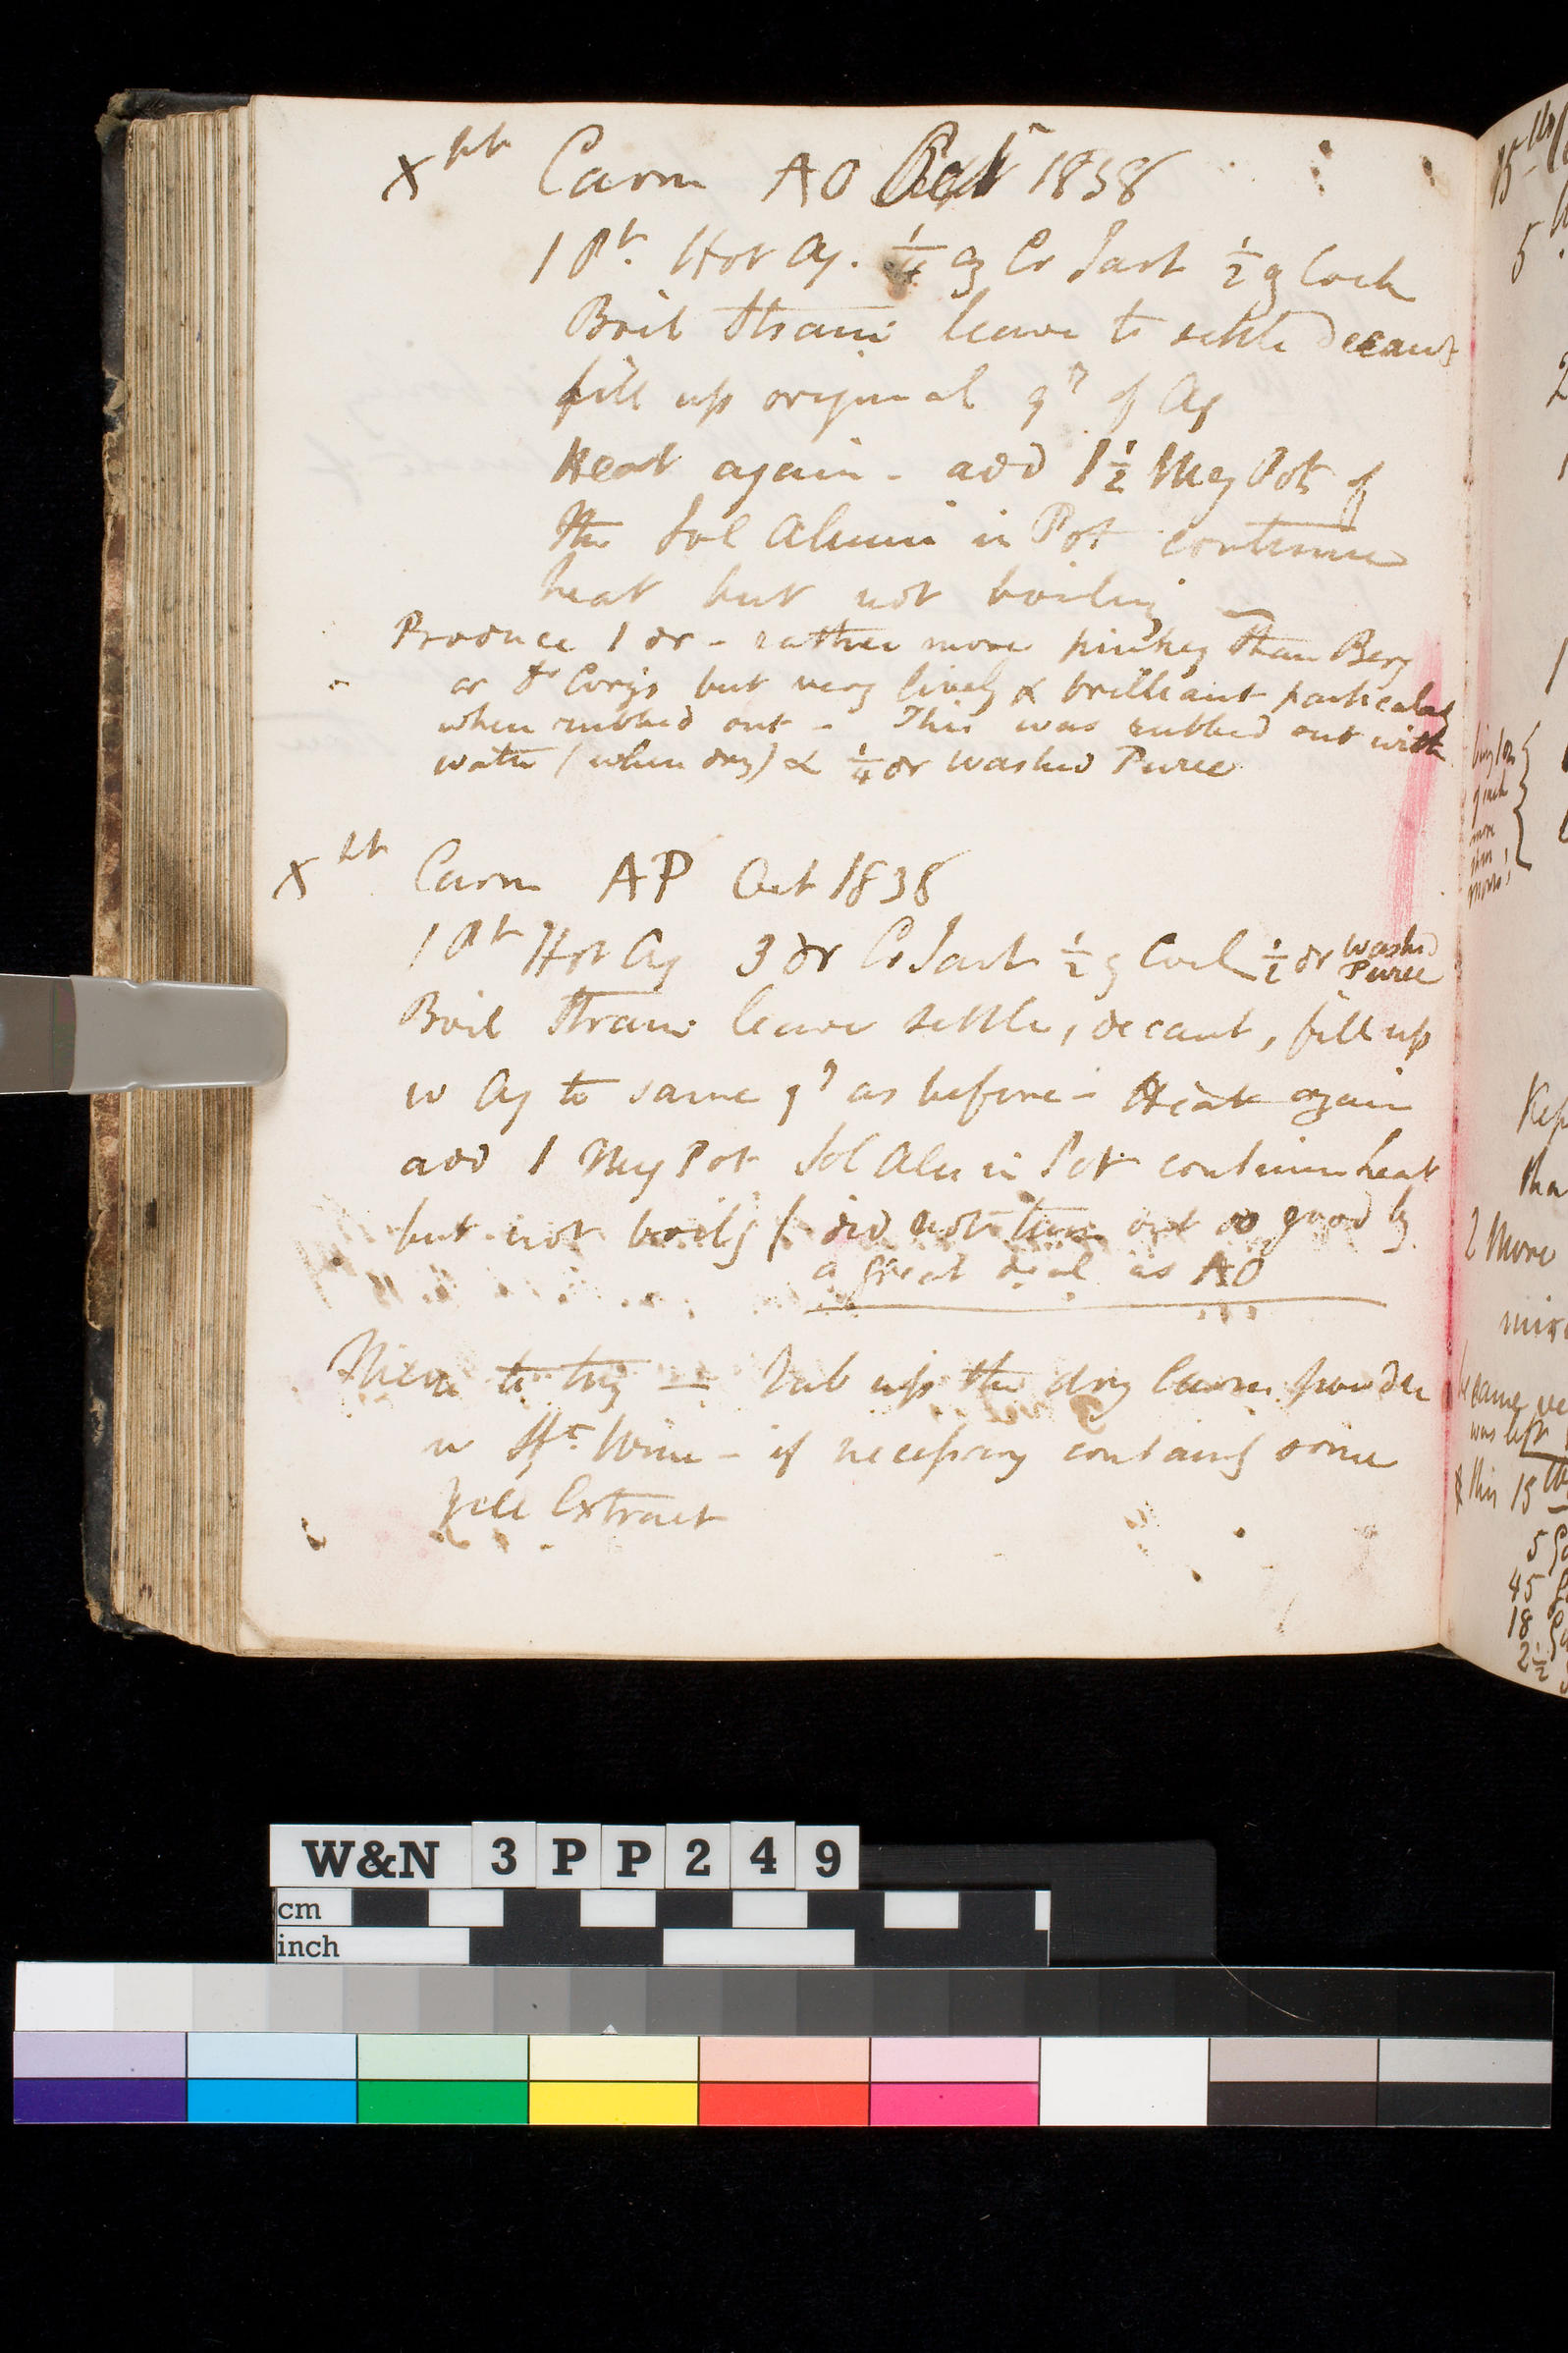 X pt Carm AO Oct 1838
1 Pt. Hot Aq. 1/4 oz Cr Tart 1/2 ʒ Coch
Boil Strain leave to settle Decant
fill up original qy of Aq
Heat again - add 1 1/2 Meg Pots of
the Sol Alumi in Pot continue
heat but not boiling
Produce 1 dr - rather more pinkey than Berg
or Dr Corys but very lively & brilliant particularly
when rubbed out - This was rubbed out with
water (when dry) & 1/4 dr Washed Puree
X pt Carm AP Oct 1838
1 Pt Hot Aq 3 dr Cr Tart 1/2 ʒ Coch 1/2 dr Washed Puree
Boil Strain leave settle, decant, fill up
w Aq to same qy as before - Heat again
add 1 Meg Pot Sol Alu in Pot continue heat
but not boilg (did not turn out so good by
a great deal as AO
Mem to try - Rub up the dry Carm powder
w St. Wine - if necessary containg some
Yell Extract
2 More
was left
& this 15
5
45
18
2 1/2
W&N 3PP249
cm
inch